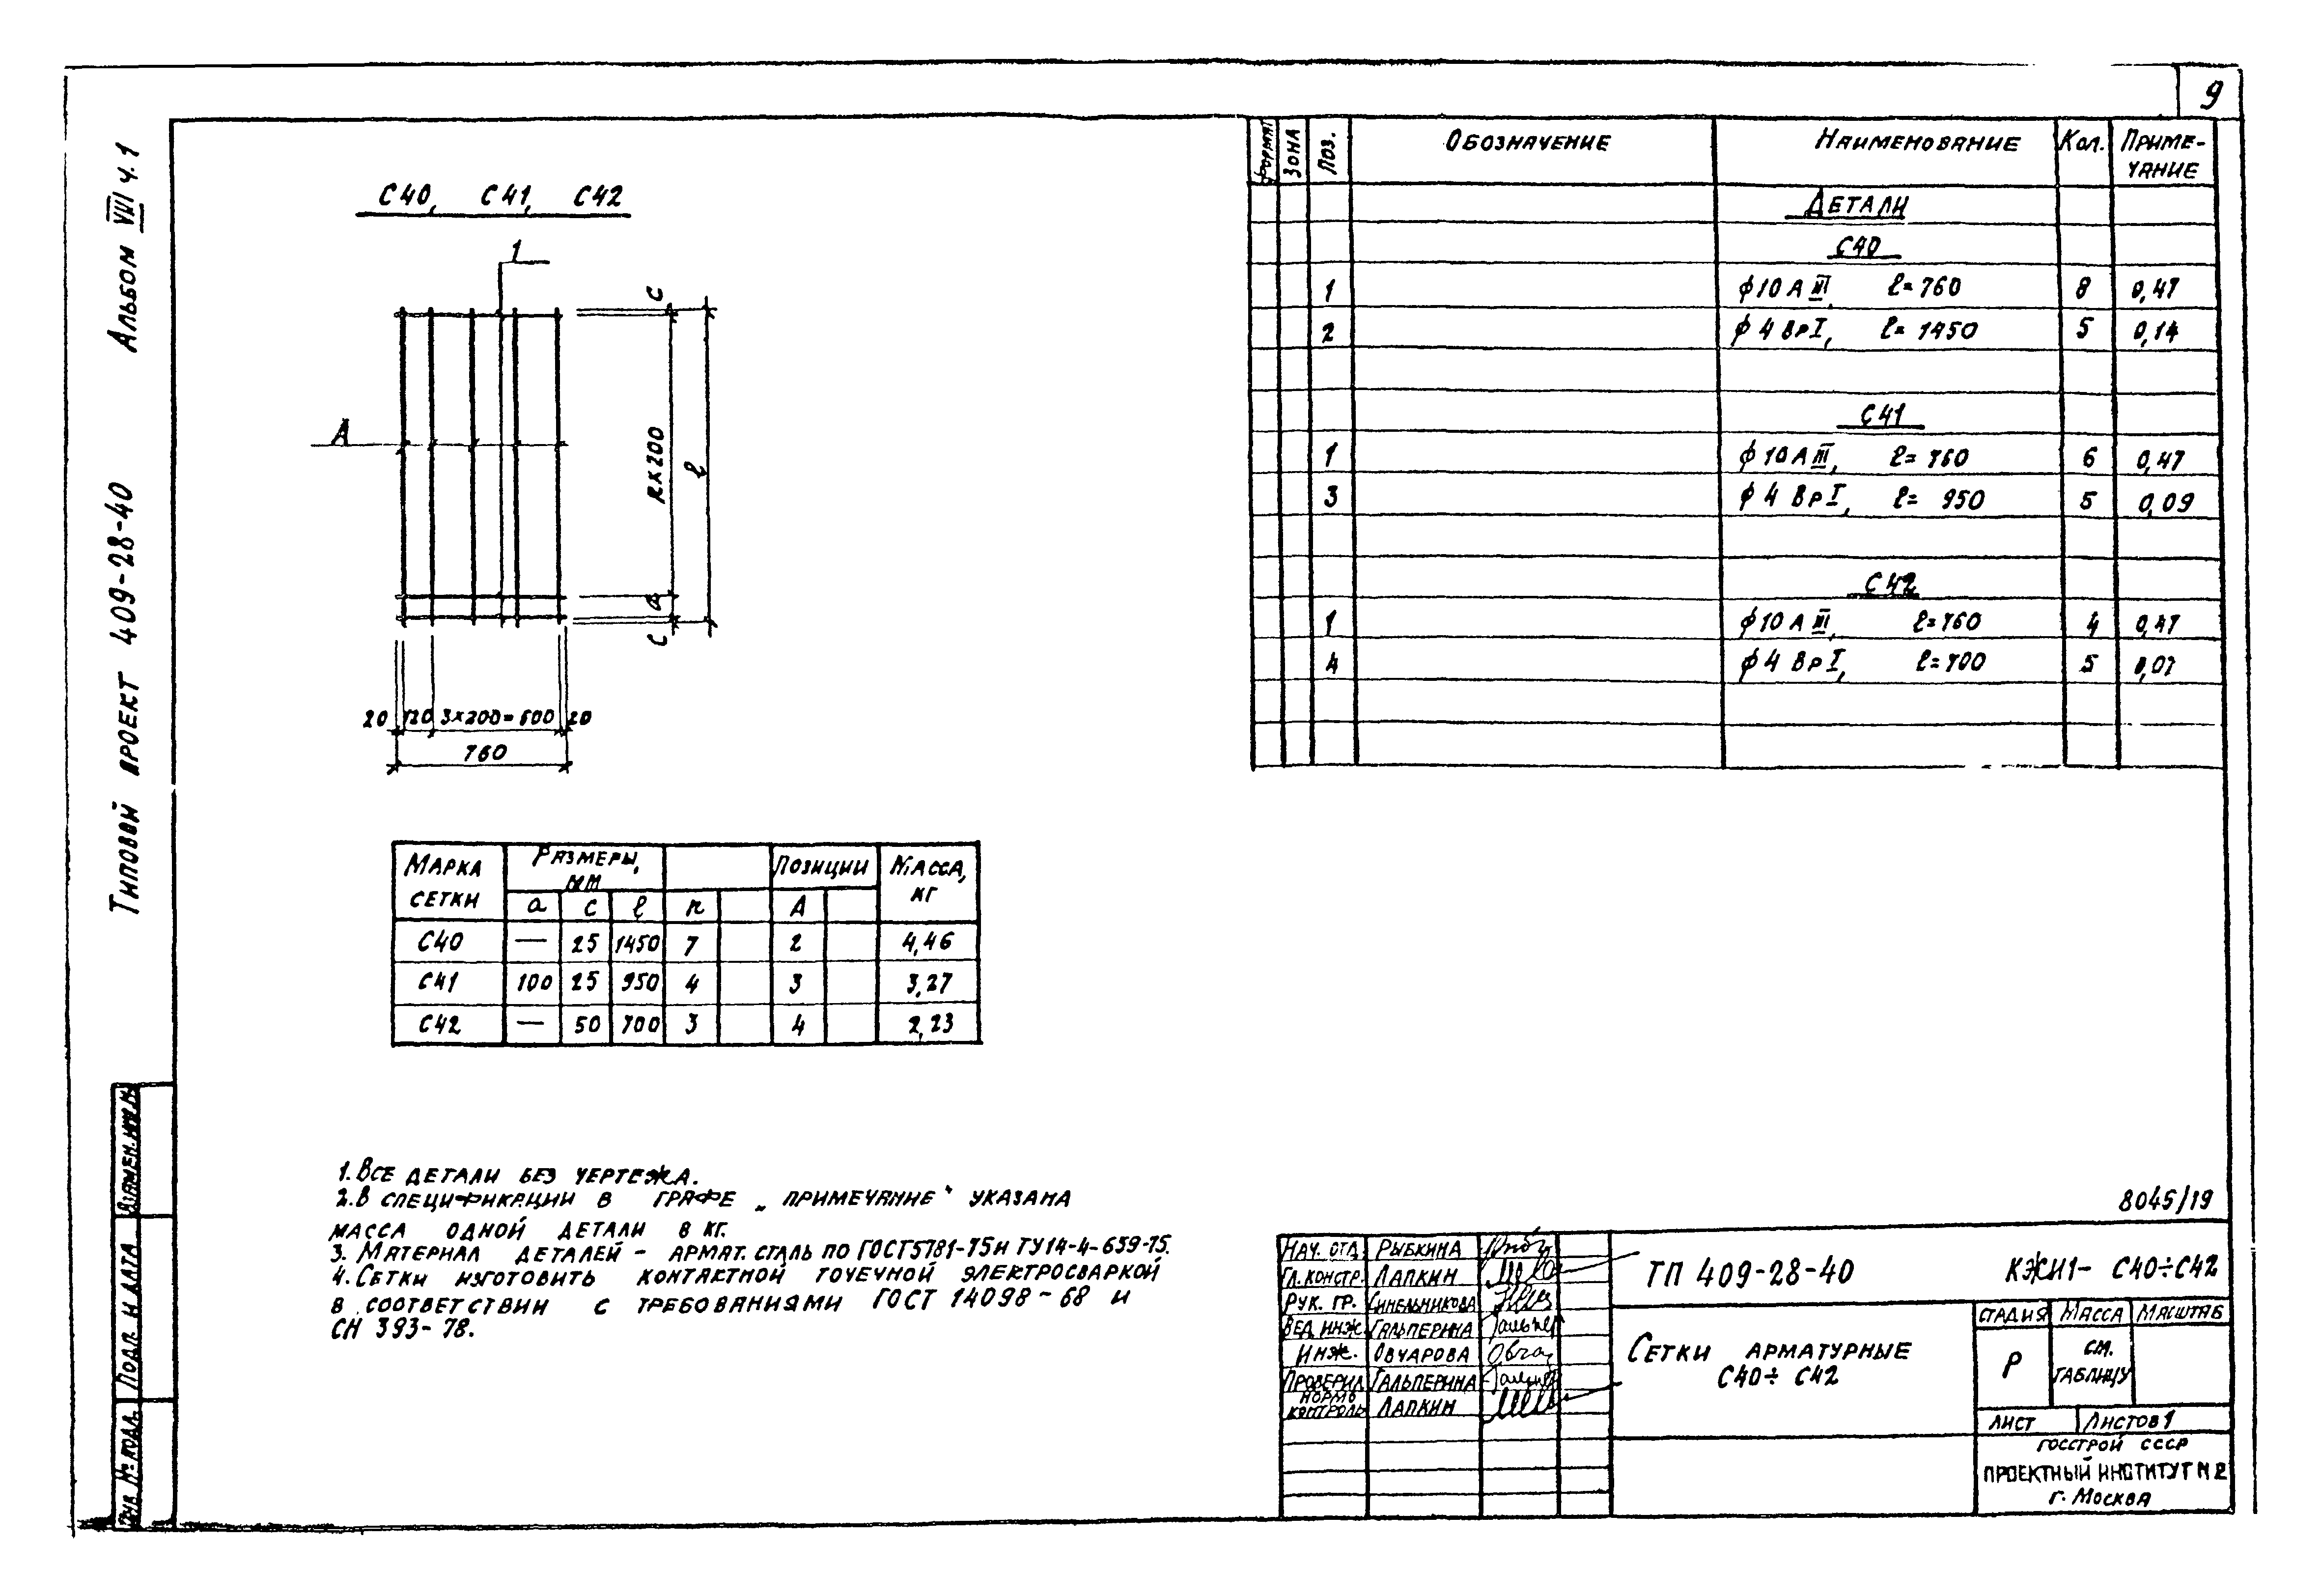 9
Альбом VIII ч.1
Типовой проект 409-28-40
С40, С41, С42
1
А
c
n×200
ℓ
a
c
20 120 3×200=600 20
760
Формат Зона Поз. Обозначение Наименование Кол. Приме-
чание
Детали
С40
1 ϕ10 А III, ℓ=760 8 0,47
2 ϕ 4 Вр I, ℓ= 1450 5 0,14
С41
1 ϕ 10 А III, ℓ= 760 6 0,47
3 ϕ 4 Вр I, ℓ= 950 5 0,09
С42
1 ϕ10 А III, ℓ=760 4 0,47
4 ϕ4 Вр I, ℓ=700 5 0,07
Марка
сетки Размеры,
мм Позиции Масса,
кг
a c ℓ n А
С40 — 25 1450 7 2 4,46
С41 100 25 950 4 3 3,27
С42 — 50 700 3 4 2,23
1. Все детали без чертежа.
2. В спецификации в графе „примечание" указана
масса одной детали в кг.
3. Материал деталей – армат. сталь по ГОСТ 5781-75 и ТУ 14-4-659-75.
4. Сетки изготовить контактной точечной электросваркой
в соответствии с требованиями ГОСТ 14098-68 и
СН 393-78.
Взамен. инв. №
Подп. и дата
Инв. № подл.
8045/19
Нач. отд. Рыбкина
Гл. констр. Лапкин
Рук. гр. Синельникова
Вед. инж. Гальперина
Инж. Овчарова
Проверил Гальперина
Нормо
контроль Лапкин
ТП 409-28-40 КЖИ1- С40÷С42
Сетки арматурные
С40÷ С42
Стадия Масса Масштаб
Р см.
таблицу
Лист Листов 1
Госстрой СССР
Проектный институт № 2
г. Москва